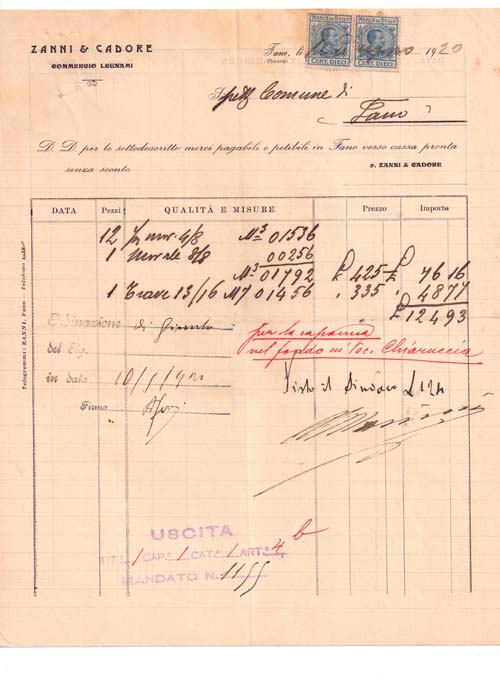 ZANNI & CADORE
COMMERCIO LEGNAMI
MARCA DA BOLLO MARCA DA BOLLO
CENT. DIECI CENT. DIECI
Fano, li 1920
(Pesaro)
Spett Comune di
Fano
D. D. per le sottodescritte merci pagabili e petibili in Fano verso cassa pronta
senza sconto.
p. ZANNI & CADORE
DATA Pezzi QUALITÀ E MISURE Prezzo Importo
12 4/8 M³ 01536
1 Morale 8/8 00256
M³ 01792 £ 425 £ 76 16
1 Trave 13/16 M 7 01456 " 335 " 48 77
£ 124 93
Ordinazione di Giunta
del Sig.
in data 10/1/920
Firma
per la capanna
nel fondo in Voc. Chiaruccia
Visto il Sindaco £ 124
Telegrammi: ZANNI, Fano - Telefono
USCITA
TIT.° 1 CAP.° 1 CAT.ª 1 ART.° 4 b
MANDATO N. 1155